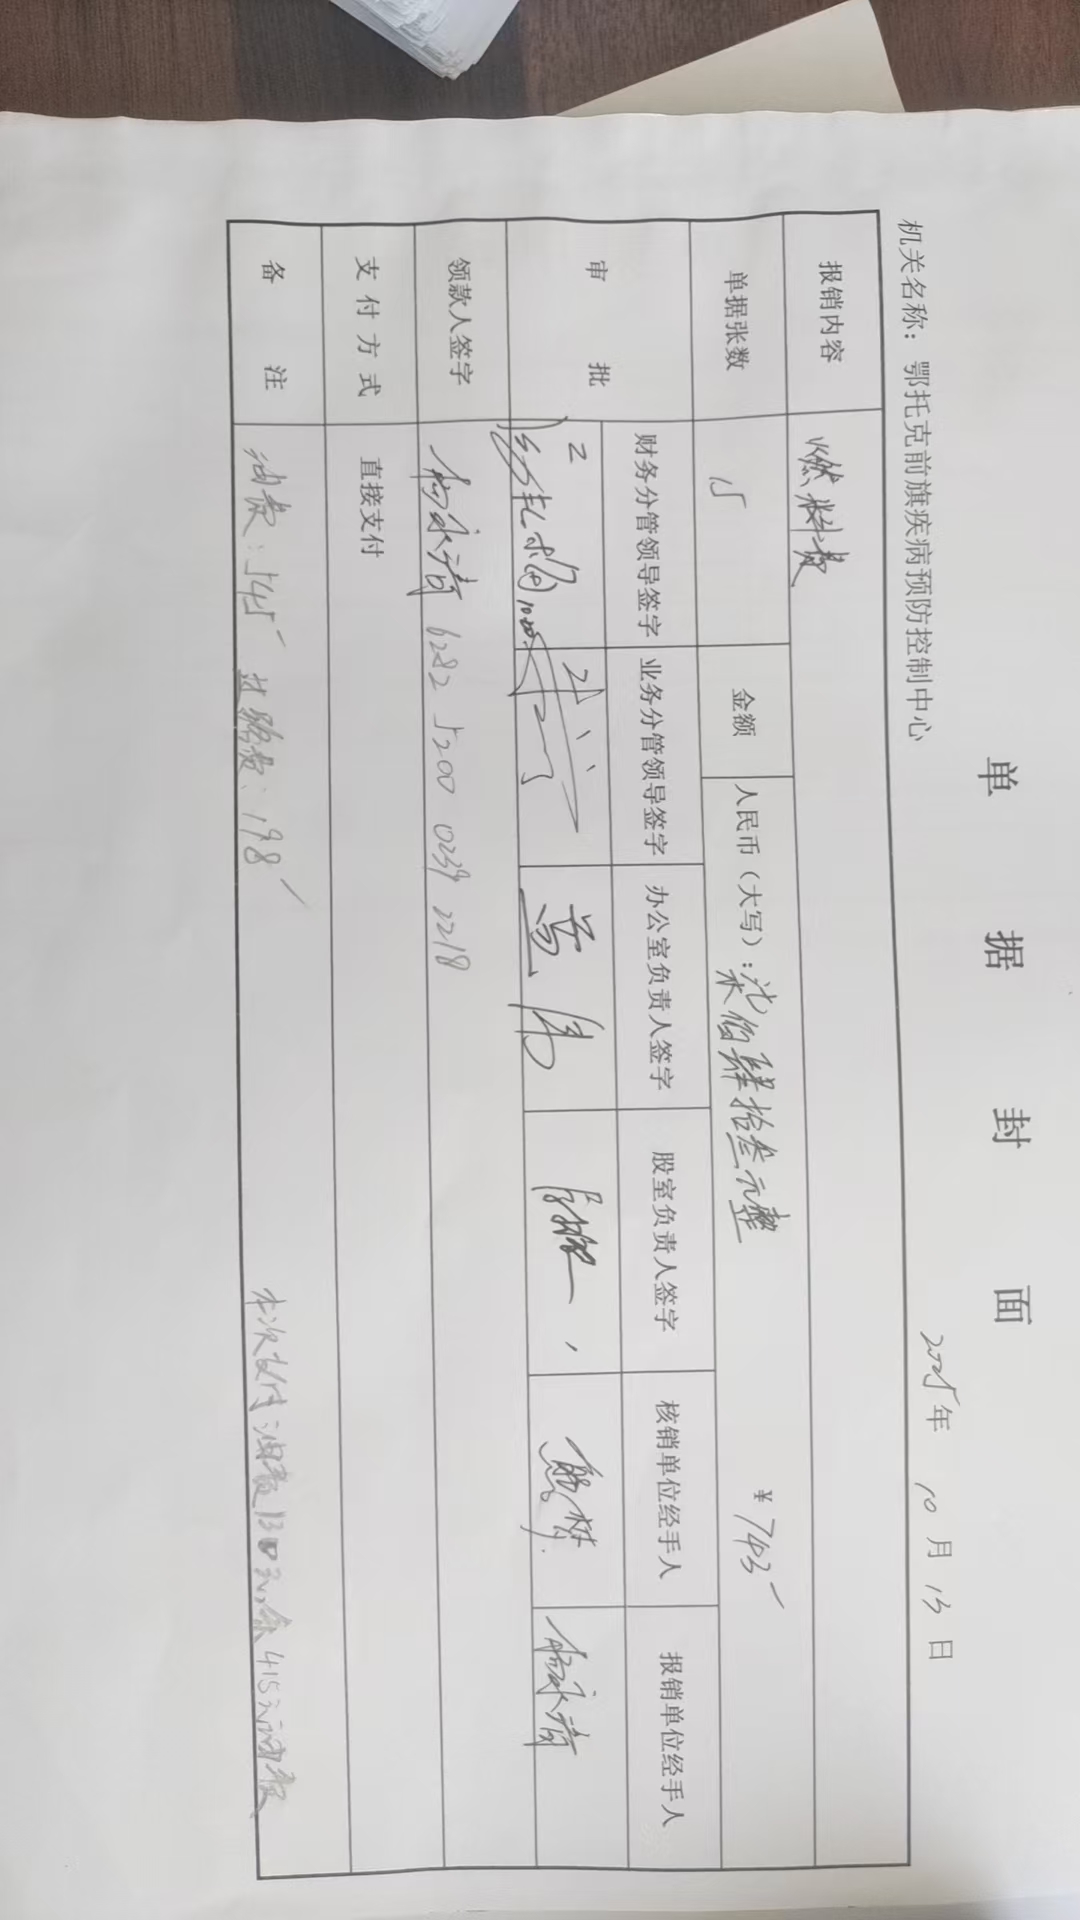 单据封面
机关名称：鄂托克前旗疾病预防控制中心 2025年 10月 13日
报销内容 燃料费
单据张数 15 金额 人民币（大写）：柒佰肆拾叁元整 ¥743
审批 财务分管领导签字 业务分管领导签字 办公室负责人签字 股室负责人签字 核销单位经手人 报销单位经手人
领款人签字 杨永清 6282 5200 0239 2218
支付方式 直接支付
备注 油费：545 过路费：198
本次支付油费130元,余415元油费